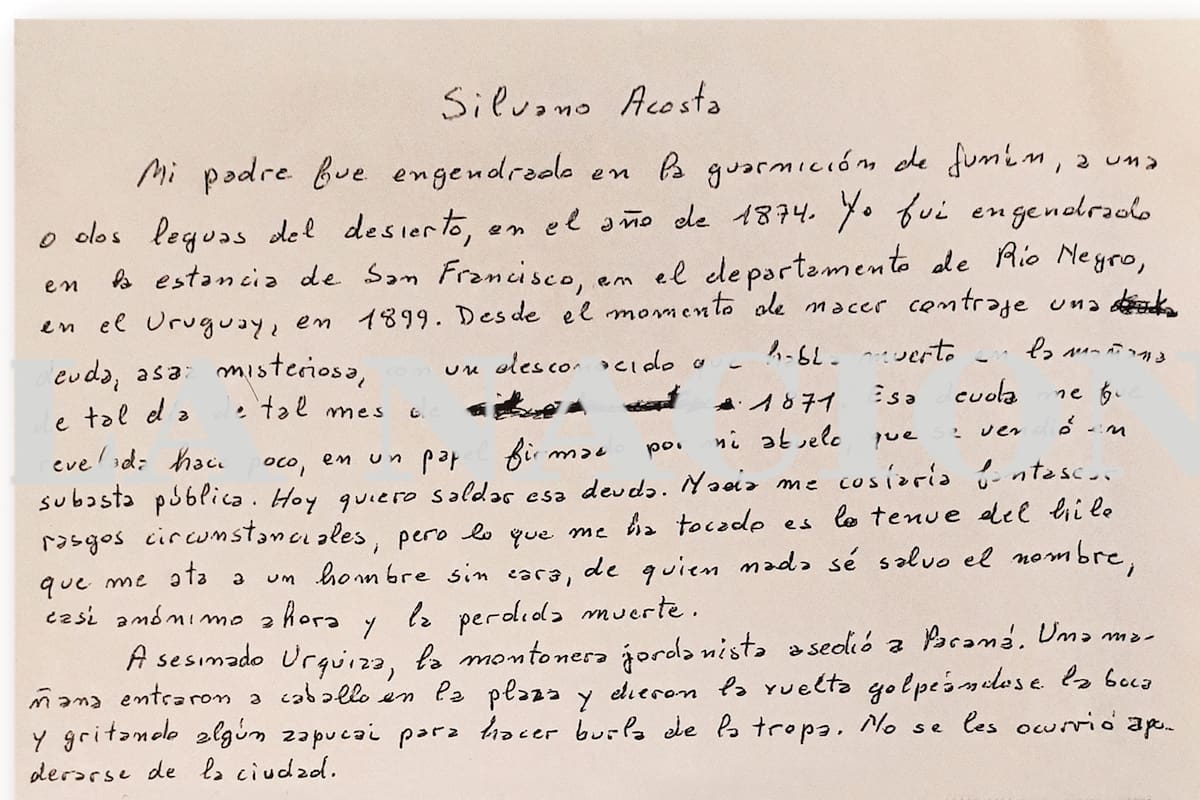 Silvano Acosta
Mi padre fue engendrado en la guarnición de Junín, a una
o dos leguas del desierto, en el año de 1874. Yo fui engendrado
en la estancia de San Francisco, en el departamento de Río Negro,
en el Uruguay, en 1899. Desde el momento de nacer contraje una
deuda, asaz misteriosa, con un desconocido que había muerto en la mañana
de tal día de tal mes de 1871. Esa deuda me fue
revelada hace poco, en un papel firmado por mi abuelo, que se vendió en
subasta pública. Hoy quiero saldar esa deuda. Nada me costaría fantasear
rasgos circunstanciales, pero lo que me ha tocado es lo tenue del hilo
que me ata a un hombre sin cara, de quien nada sé salvo el nombre,
casi anónimo ahora y la perdida muerte.
Asesinado Urquiza, la montonera jordanista asedió a Paraná. Una ma-
ñana entraron a caballo en la plaza y dieron la vuelta golpeándose la boca
y gritando algún zapucai para hacer burla de la tropa. No se les ocurrió apo-
derarse de la ciudad.
LA NACION